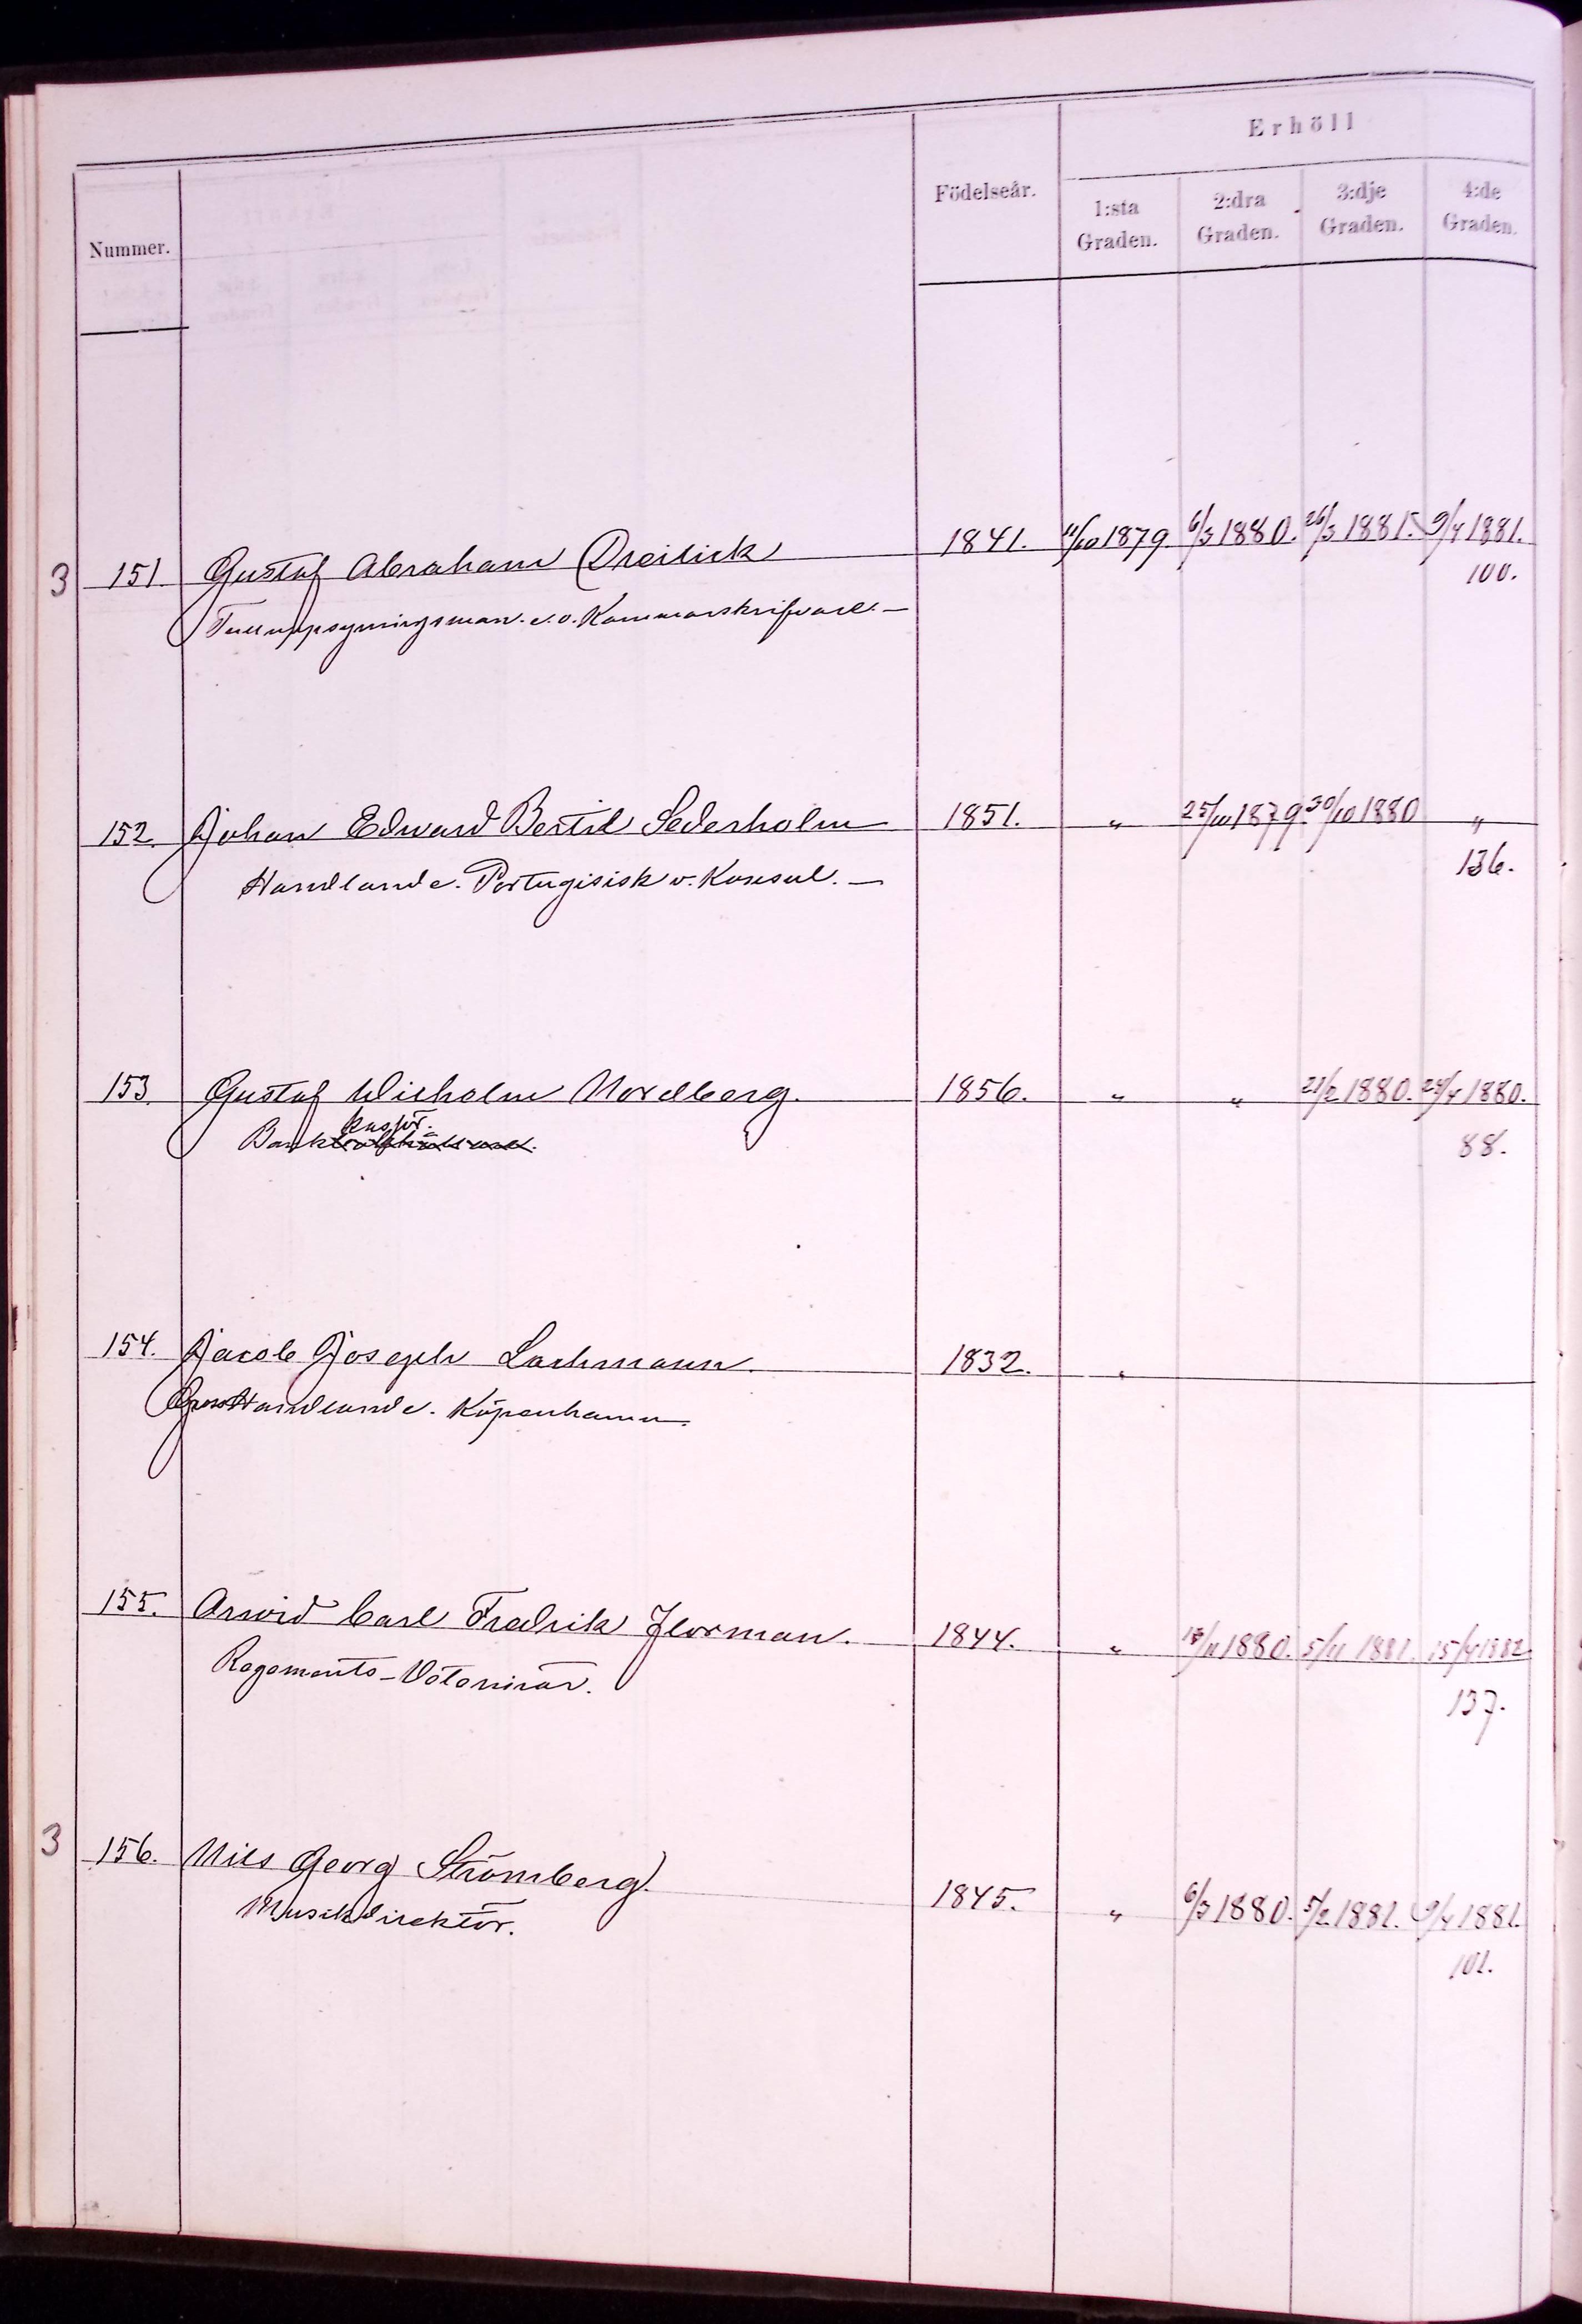 Erhöll
Nummer. Födelseår. 1:sta Graden. 2:dra Graden. 3:dje Graden. 4:de Graden.
3 151. Gustaf Abraham Dreilick 1841. 11/10 1879. 6/3 1880. 26/3 1881. 9/4 1881.
100.
Tulluppsyningsman. e.o. Kammarskrifvare.—
152. Johan Edward Bertil Sederholm 1851. " 25/10 1879. 30/10 1880 "
136.
Handlande. Portugisisk v. Konsul.—
153. Gustaf Wilhelm Nordberg. 1856. " " 21/2 1880. 24/4 1880.
88.
kassör.
Bank
154. Jacob Joseph Lachmann. 1832. "
GrossHandlande. Köpenhamn.
155. Arwid Carl Fredrik Florman. 1844. " 13/11 1880. 5/11 1881. 15/4 1882.
137.
Regements-Veterinär.
3 156. Nils Georg Strömberg. 1845. " 6/3 1880. 5/2 1881. 9/4 1881.
101.
Musikdirektör.